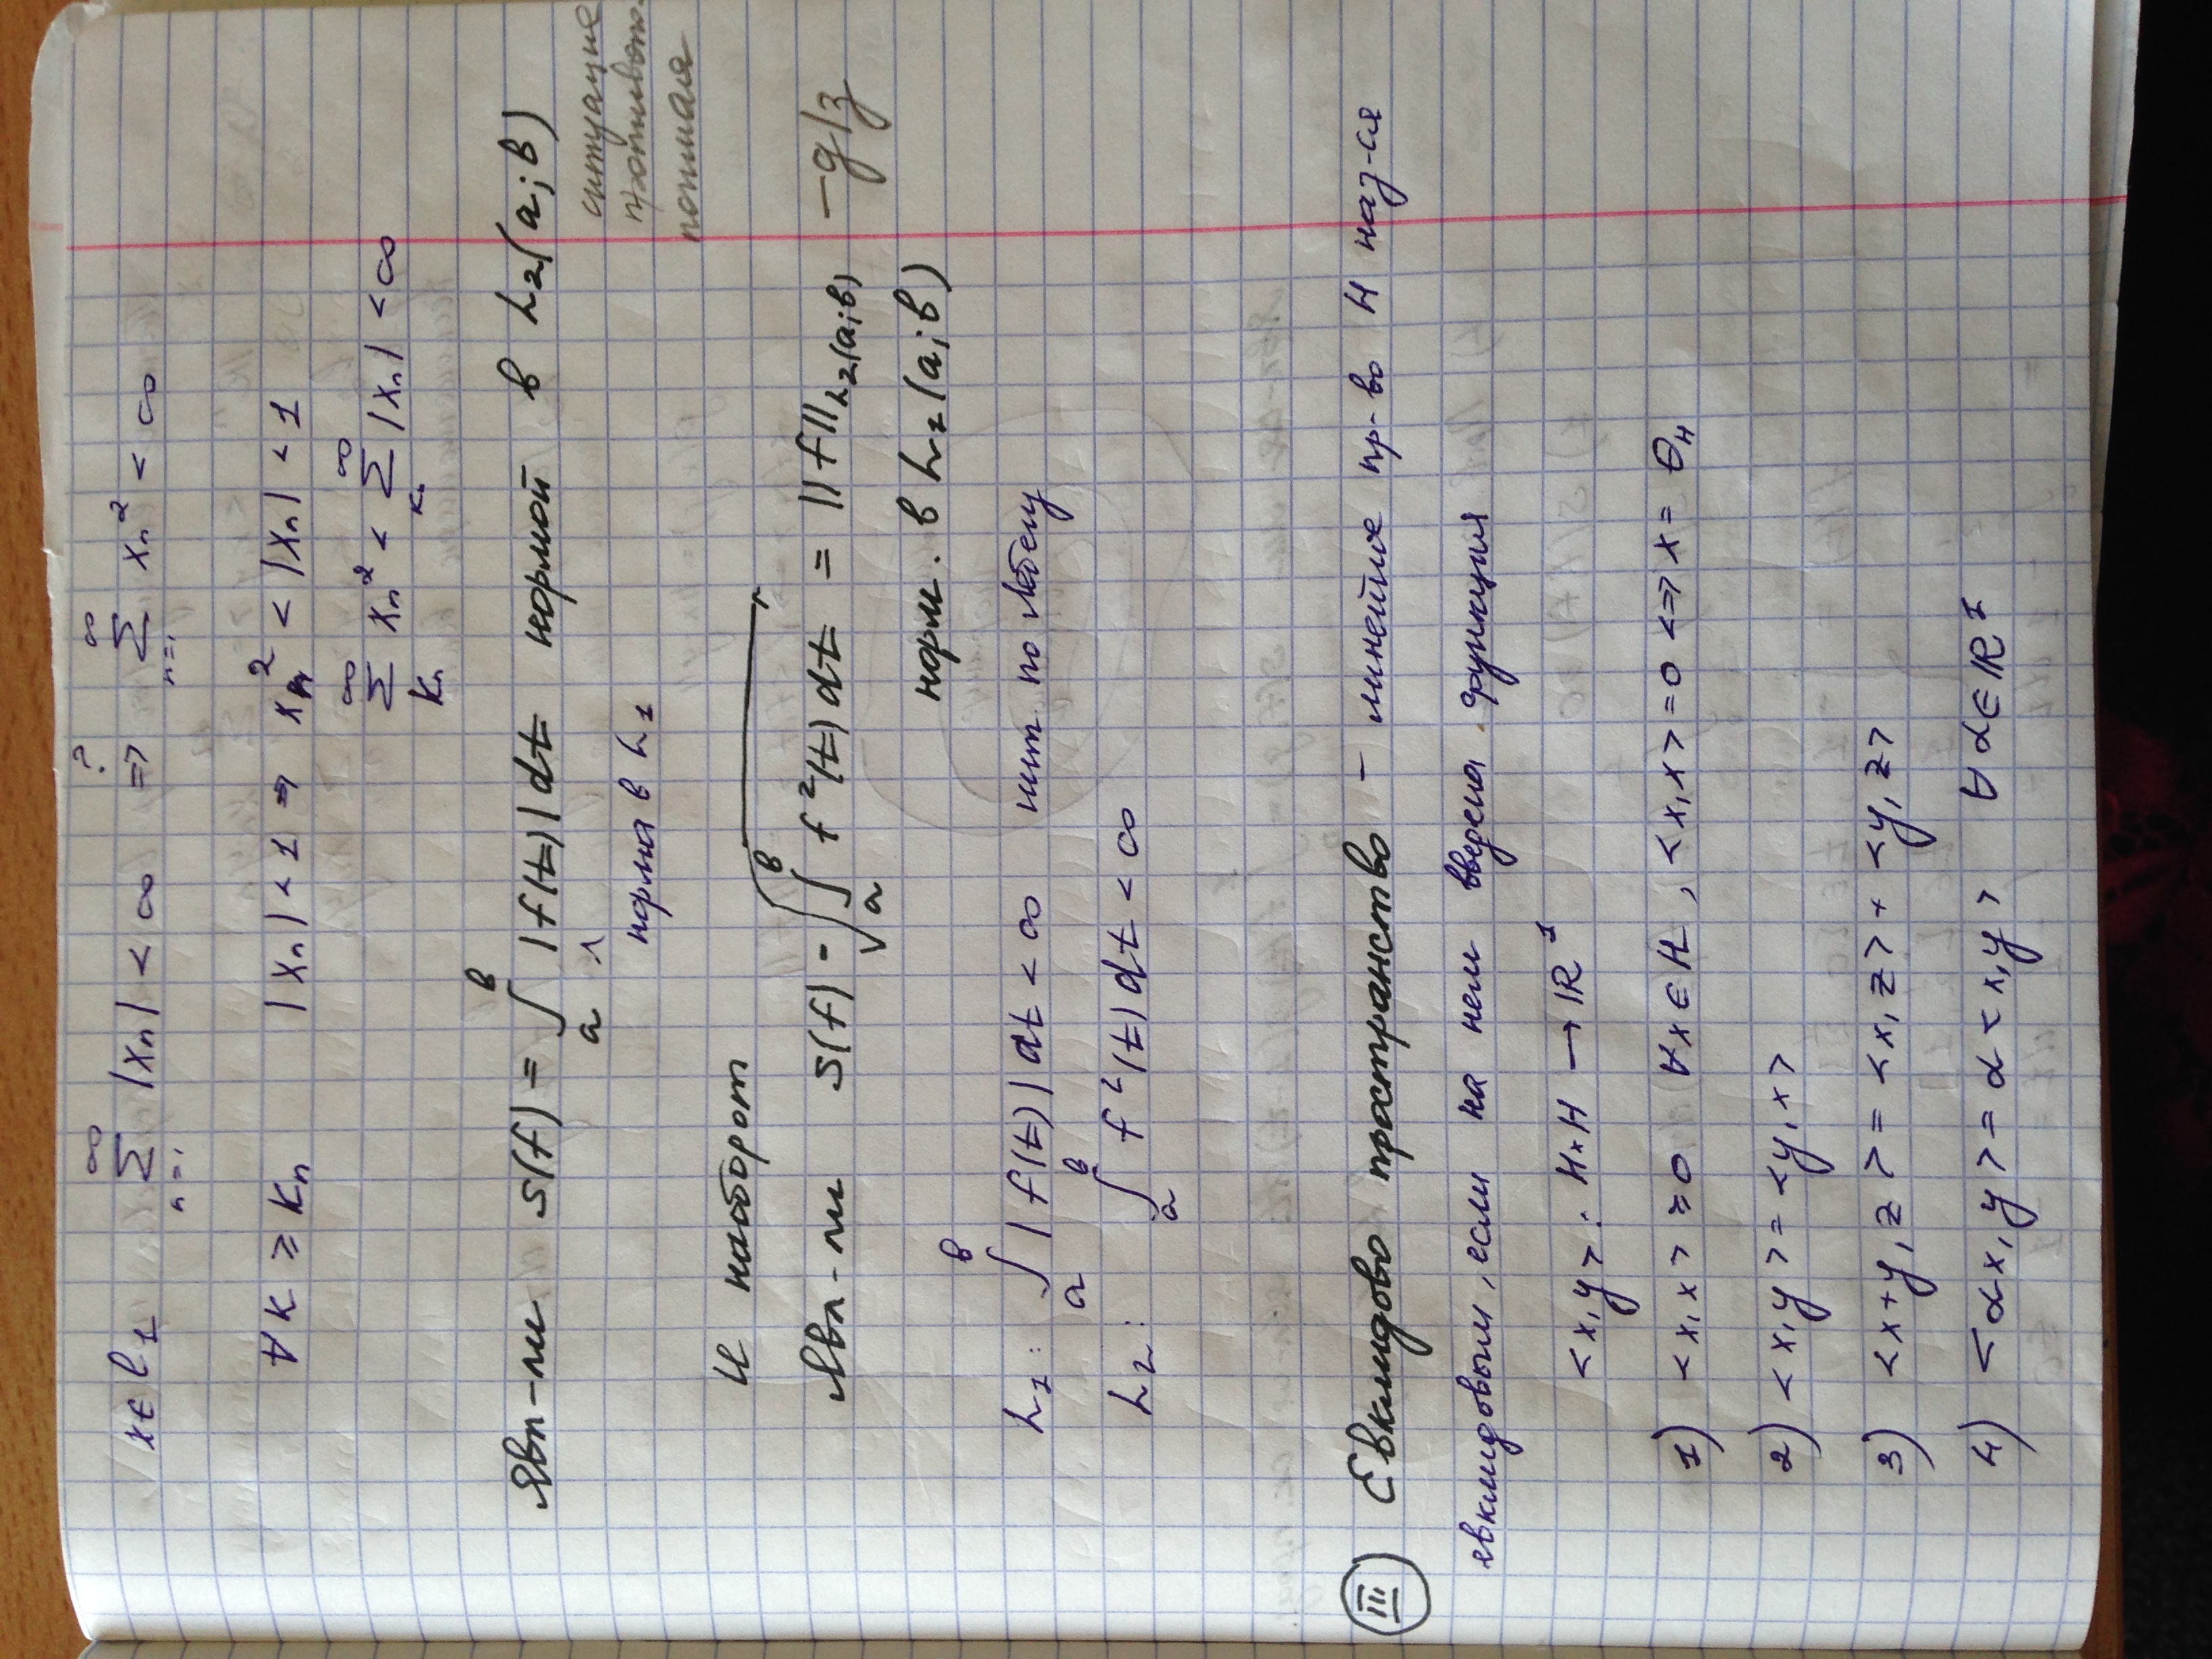 x∈l₁ ∑_{n=1}^∞ |xₙ| < ∞ ⇒^? ∑_{n=1}^∞ xₙ² < ∞
∀ K ≥ Kₙ |xₙ| < 1 ⇒ xₙ² < |xₙ| < 1
∑_{Kₙ}^∞ xₙ² < ∑_{Kₙ}^∞ |xₙ| < ∞
явл-ли S(f) = ∫_a^b |f(t)| dt нормой в L₂(a;b)
норма в L₁
ситуация
противопо
ложная
и наоборот
явл-ли S(f) = √∫_a^b f²(t) dt = ||f||_{L₂(a;b)} – д/з
норм. в L₂(a;b)
L₁: ∫_a^b |f(t)| dt < ∞ инт. по Лебегу
L₂: ∫_a^b f²(t) dt < ∞
III Евклидово пространство – линейное пр-во H наз-ся
евклидовым, если на нем введена функция
<x,y>: H×H → ℝ¹
1) <x,x> ≥ 0 ∀x∈H, <x,x>=0 <=> x= θ_H
2) <x,y> = <y,x>
3) <x+y,z> = <x,z> + <y,z>
4) <αx,y> = α<x,y> ∀ α∈ℝ¹